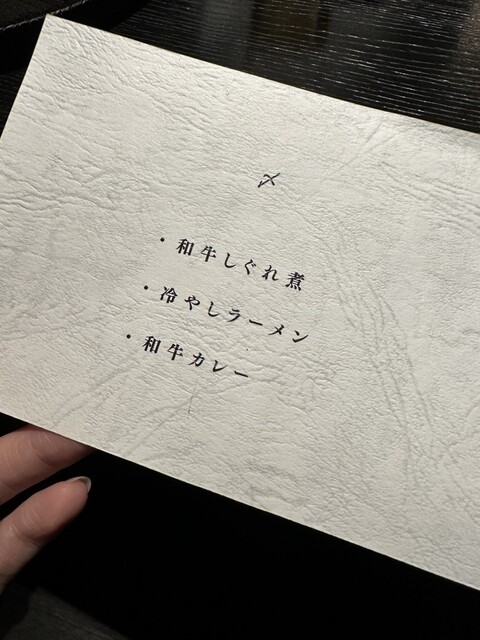 〆
・和牛しぐれ煮
・冷やしラーメン
・和牛カレー